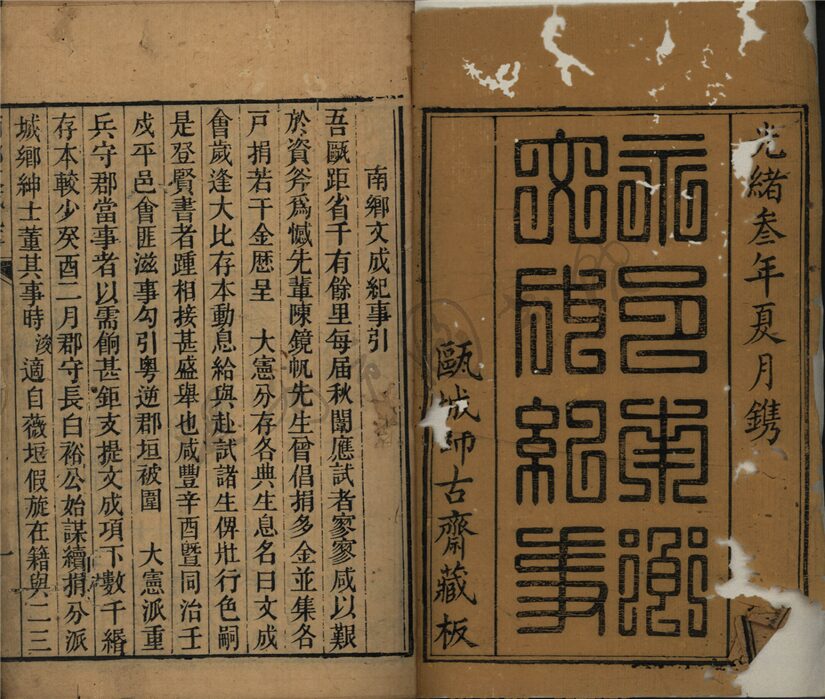 光緒叁年夏月鐫
永邑南鄉
文成紀事
甌城師古齋藏板
南鄉文成紀事引
吾甌距省千有餘里每届秋闈應試者寥寥咸以艱
於資斧爲憾先輩陳鏡帆先生曾倡捐多金並集各
戸捐若干金歷呈 大憲分存各典生息名曰文成
會歲逢大比存本動息給與赴試諸生俾壯行色嗣
是登賢書者踵相接甚盛舉也咸豐辛酉暨同治壬
戌平邑會匪滋事勾引粵逆郡垣被圍 大憲派重
兵守郡當事者以需餉甚鉅支提文成項下數千緡
存本較少癸酉二月郡守長白裕公始謀續捐分派
城鄉紳士董其事時浚適自薇垣假旋在籍與二三
一